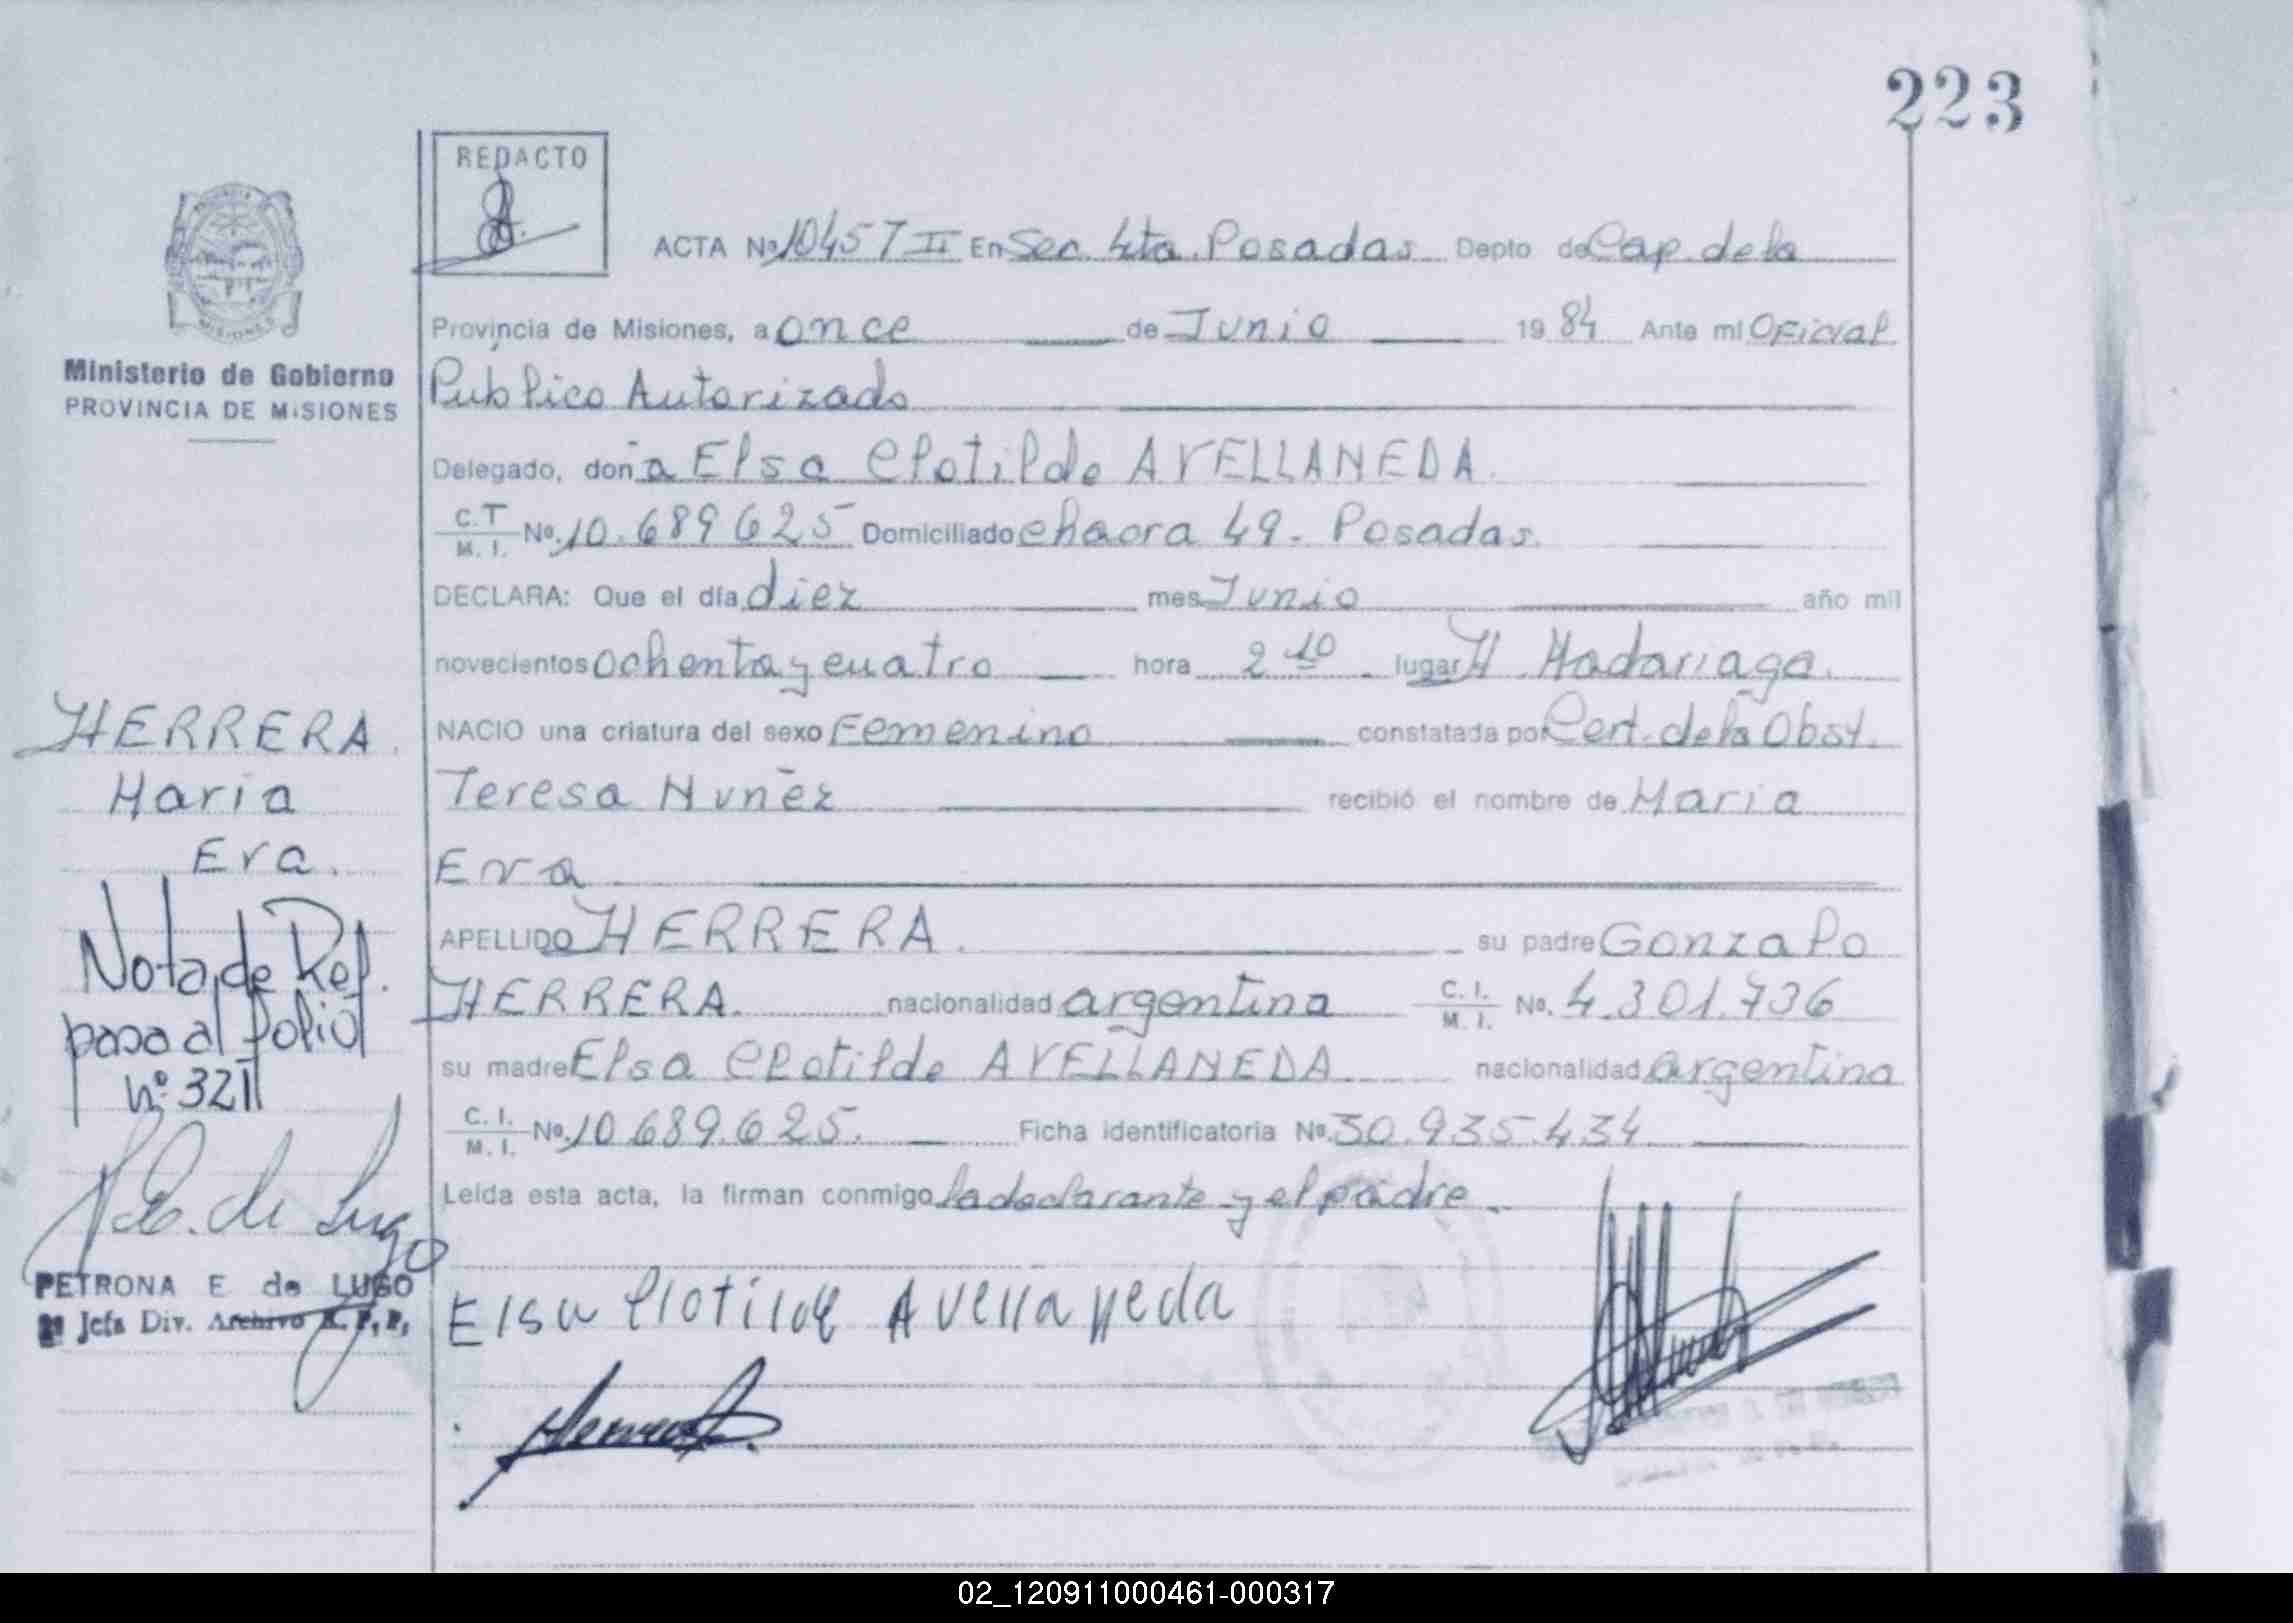 223
REDACTO
ACTA Nº 10457 II En Sec. 4ta. Posadas Depto de Cap. de la
Provincia de Misiones, a once de Junio 1984 Ante mi Oficial
Ministerio de Gobierno
PROVINCIA DE MISIONES
Publico Autorizado
Delegado, doña Elsa Clotilde AVELLANEDA.
C.T M. I. Nº 10.689625 Domiciliado chacra 49. Posadas.
DECLARA: Que el día diez mes Junio año mil
novecientos ochenta y cuatro hora 2 10 lugar H. Madariaga.
NACIO una criatura del sexo Femenino constatada por Cert. de la Obst.
Teresa Nuñez recibió el nombre de Maria
Eva
APELLIDO HERRERA. su padre Gonzalo
HERRERA. nacionalidad argentina C. I. M. I. Nº. 4.301.736
su madre Elsa Clotilde AVELLANEDA nacionalidad argentina
C. I. M. I. Nº 10.689.625. Ficha identificatoria Nº 30.935.434
Leída esta acta, la firman conmigo la declarante y el padre.
Elsa Clotilde Avellaneda
HERRERA.
Maria
Eva.
Nota de Ref.
pasa al folio
nº 321
P.E. de Lugo
PETRONA E de LUGO
2º Jefa Div. Archivo R. P. P.
MISIONES
02_120911000461-000317